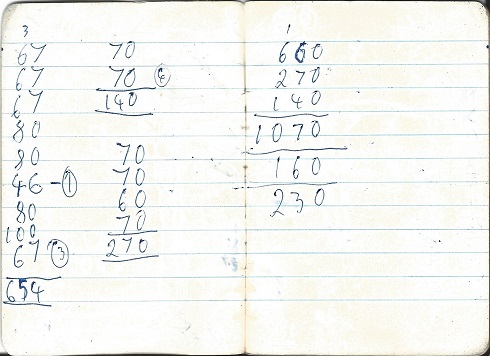 3
67
67
67
80
80
46 - ①
80
100
67 ③
654
70
70 ④
140
70
70
60
70
270
1
660
270
140
1070
160
230